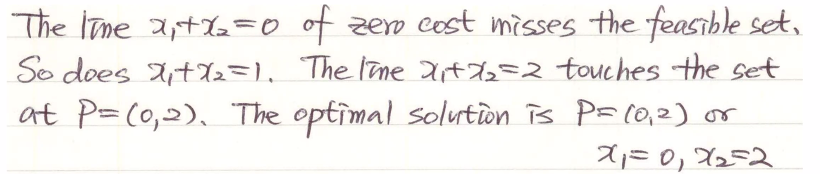 The line x₁+x₂=0 of zero cost misses the feasible set.
So does x₁+x₂=1. The line x₁+x₂=2 touches the set
at P=(0,2). The optimal solution is P=(0,2) or
x₁=0, x₂=2